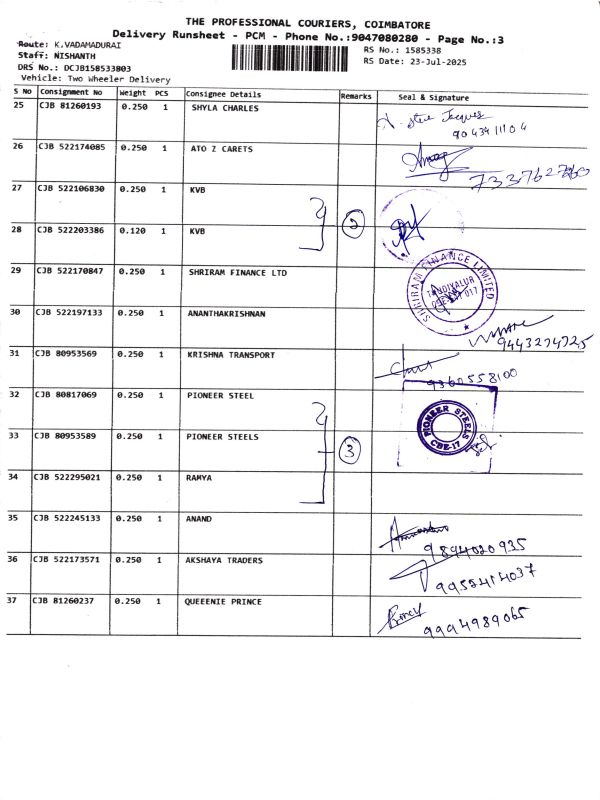 THE PROFESSIONAL COURIERS, COIMBATORE
Delivery Runsheet - PCM - Phone No.:9047080280 - Page No.:3
Route: K.VADAMADURAI
RS No.: 1585338
Staff: NISHANTH
RS Date: 23-Jul-2025
DRS No.: DCJB158533803
Vehicle: Two Wheeler Delivery
S No Consignment No Weight PCS Consignee Details Remarks Seal & Signature
25 CJB 81260193 0.250 1 SHYLA CHARLES
9043411104
26 CJB 522174085 0.250 1 ATO Z CARETS
27 CJB 522106830 0.250 1 KVB
2
28 CJB 522203386 0.120 1 KVB
29 CJB 522170847 0.250 1 SHRIRAM FINANCE LTD
SHRIRAM FINANCE LIMITED
30 CJB 522197133 0.250 1 ANANTHAKRISHNAN
9443274725
31 CJB 80953569 0.250 1 KRISHNA TRANSPORT
9360558100
32 CJB 80817069 0.250 1 PIONEER STEEL
33 CJB 80953589 0.250 1 PIONEER STEELS
3
PIONEER STEELS
CBE-17
34 CJB 522295021 0.250 1 RAMYA
35 CJB 522245133 0.250 1 ANAND
9894020935
36 CJB 522173571 0.250 1 AKSHAYA TRADERS
9952414037
37 CJB 81260237 0.250 1 QUEEENIE PRINCE
9994989065